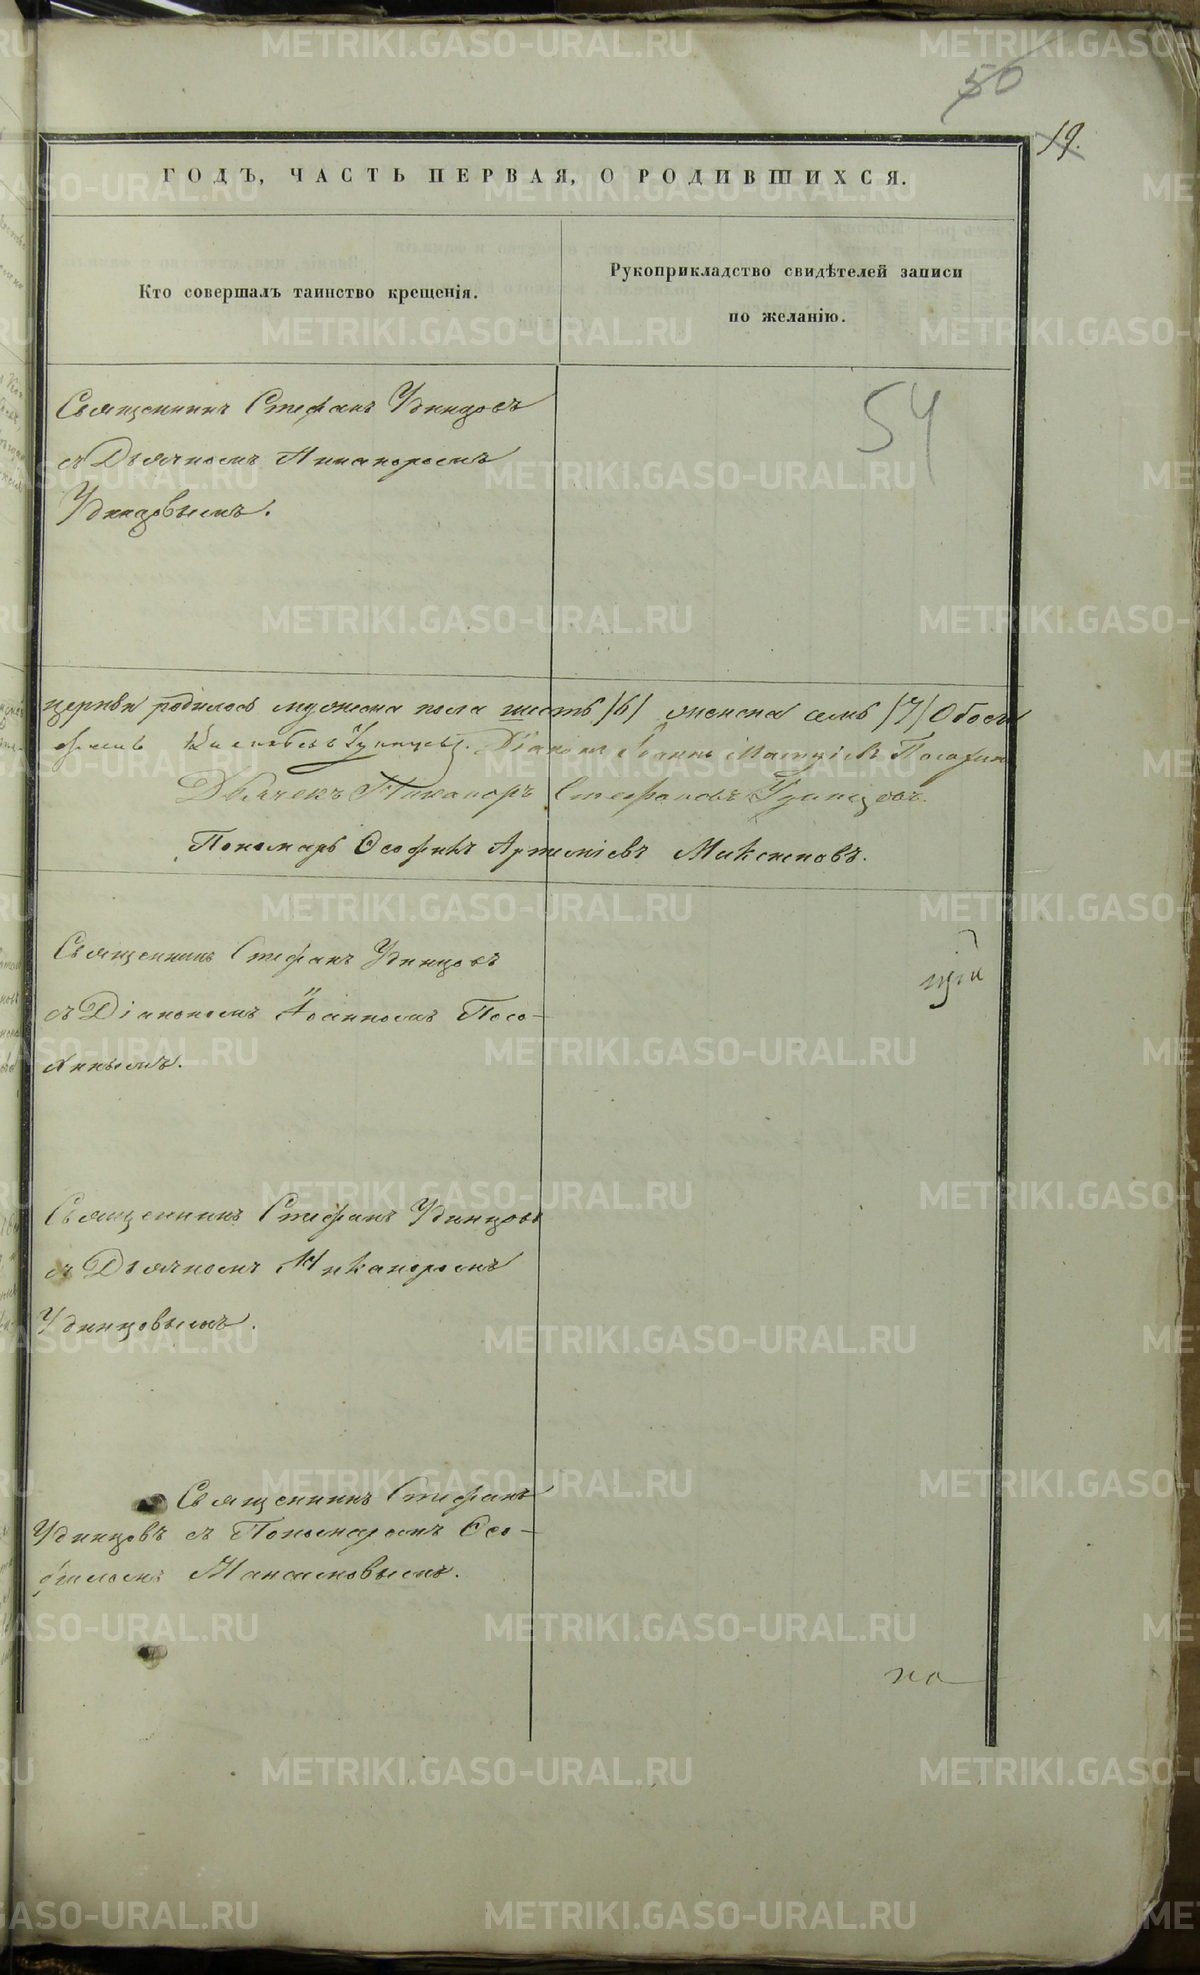 50
19.
ГОДЪ, ЧАСТЬ ПЕРВАЯ, О РОДИВШИХСЯ.
Кто совершалъ таинство крещенія.
Рукоприкладство свидѣтелей записи
по желанію.
54
Священникъ Стефанъ Удинцовъ
съ Дьячкомъ Никаноромъ
Удинцовымъ.
церкви родилось мужеска пола шесть /6/ женска семь /7/ Обоего
Діаконъ Іоаннъ
Дьячекъ Никаноръ Стефановъ Удинцовъ.
Пономарь Ѳеофилъ Артеміевъ
Священникъ Стефанъ Удинцовъ
съ Діакономъ Іоанномъ
Священникъ Стефанъ Удинцовъ
съ Дьячкомъ Никаноромъ
Удинцовымъ.
Священникъ Стефанъ
Удинцовъ съ Пономаремъ Ѳео-
филомъ
по
METRIKI.GASO-URAL.RU